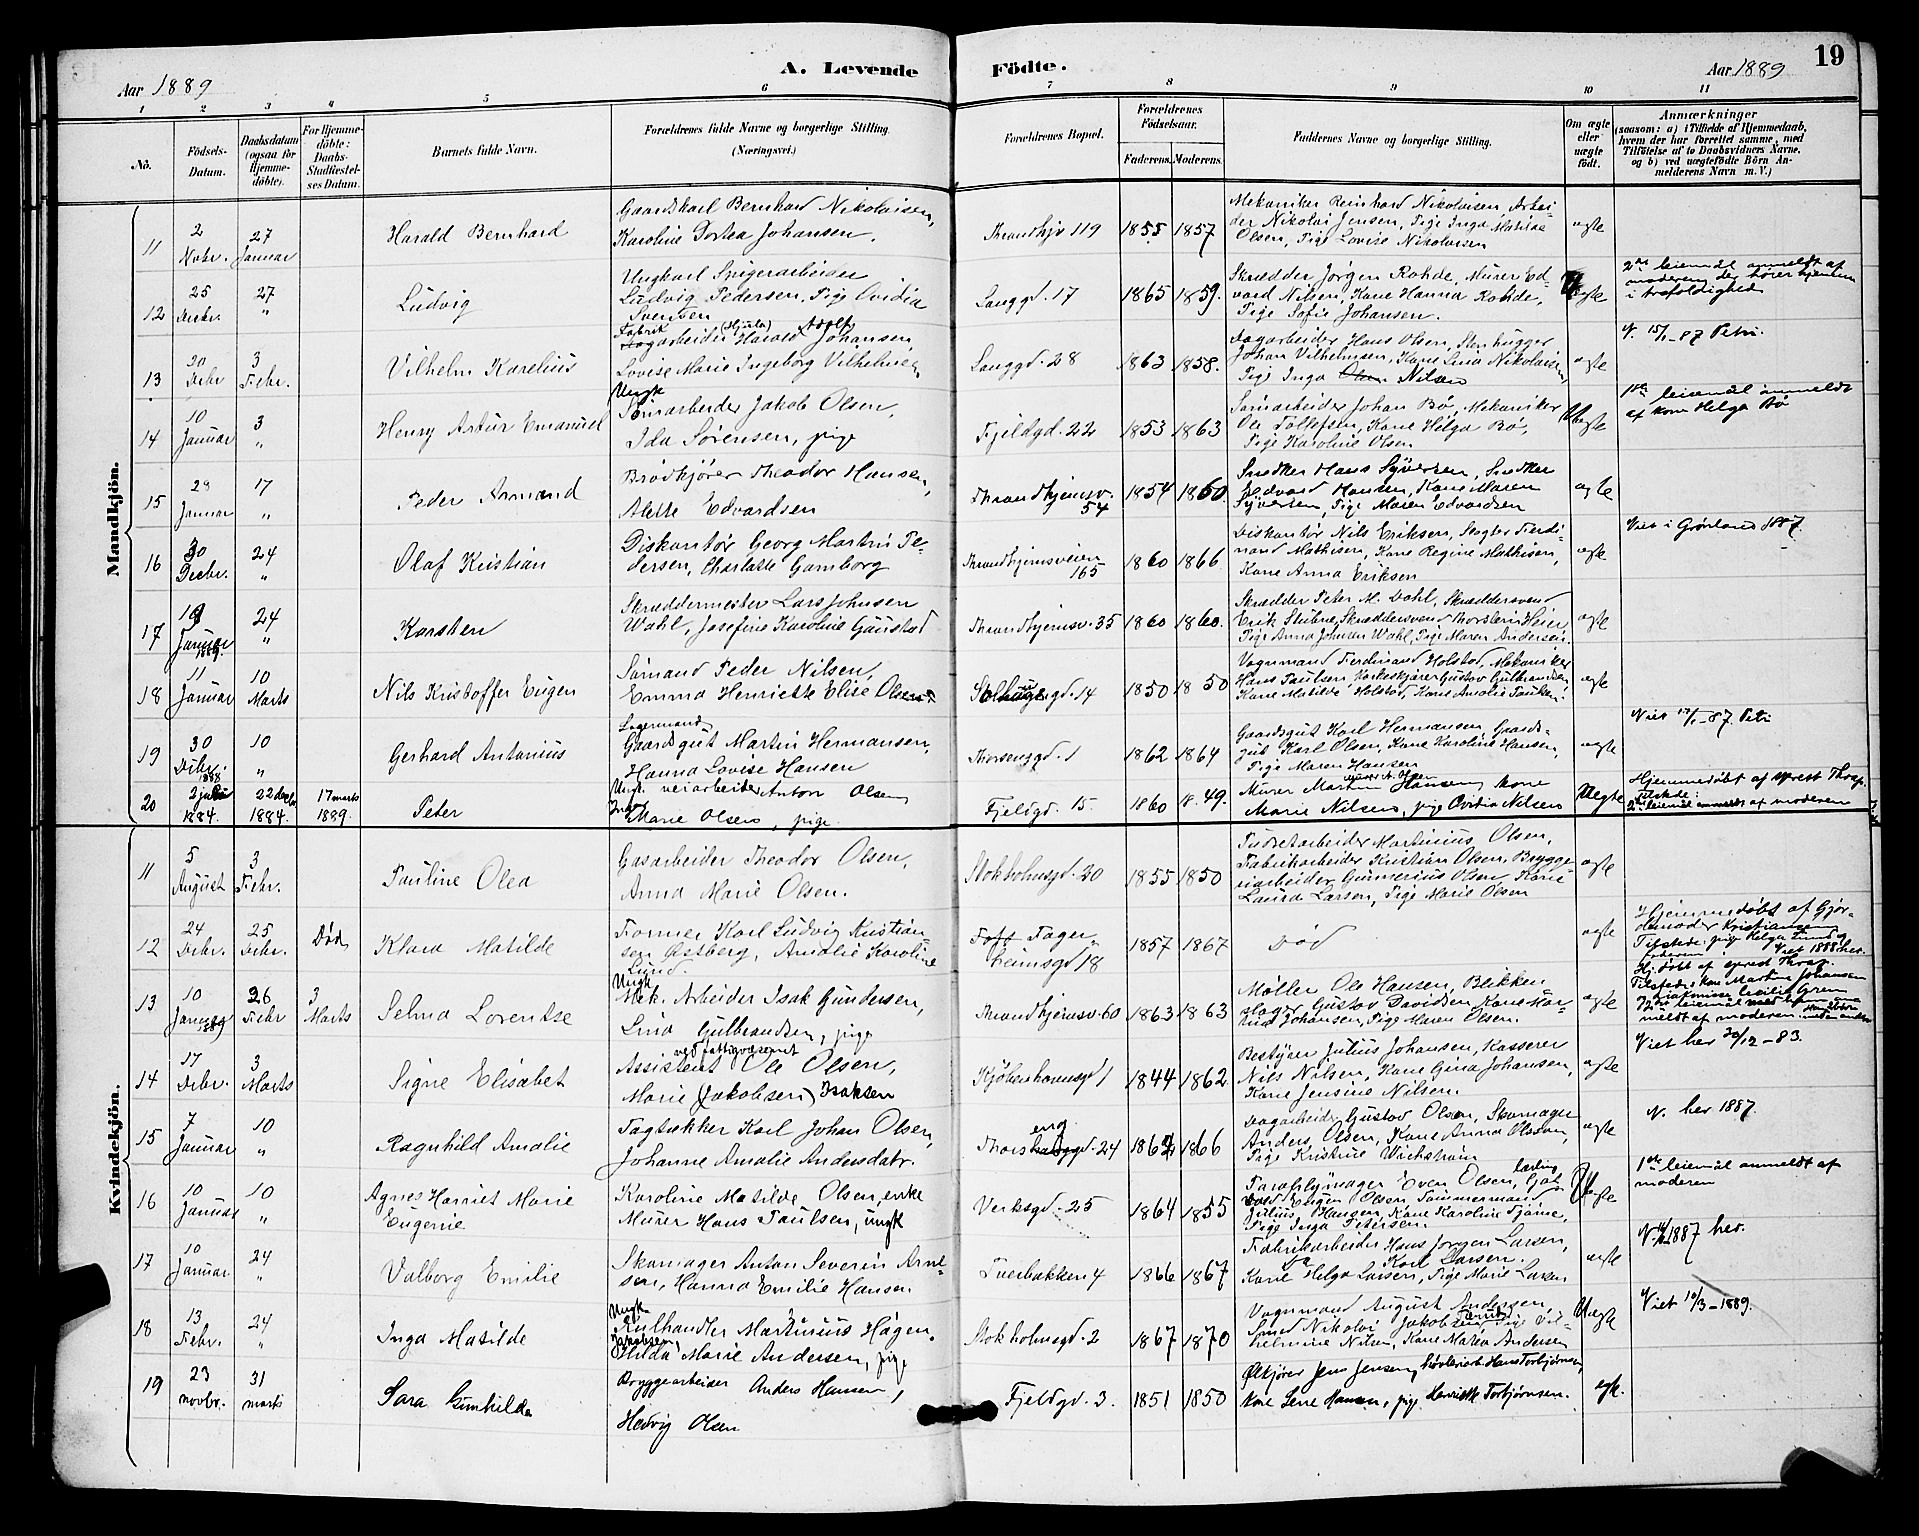 Aar 1889
A. Levende Födte.
Aar 1889
19
1 2 3 4 5 6 7 8 9 10 11
No.
Födsels-Datum.
Daabsdatum (ogsaa for Hjemme-döbte).
For Hjemme-döbte: Daabs-Stadfæstel-ses Datum.
Barnets fulde Navn.
Forældrenes fulde Navne og borgerlige Stilling. (Næringsvei.)
Forældrenes Bopæl.
Forældrenes Födselsaar.
Faderens. Moderens.
Faddernes Navne og borgerlige Stilling.
Om ægte eller uægte födt.
Anmærkninger
(saasom: a) i Tilfælde af Hjemmedaab,
hvem der har forrettet samme, med
Tilföielse af to Daabsvidners Navne.
og b) ved uægtefödte Börn An-
melderens Navn m. V.)
Mandkjön.
11 2 Novbr. 27 Januar Harald Bernhard
Gaardskarl Bernhard Nikolaisen,
Karoline Dortea Johansen.
Thrandhjv 119 1855 1857
Mekaniker Reinhard Nikolaisen Arbei-
der Nikolai Jensen, Pige Inga Matilde
Olsen, Pige Lovise Nikolaisen
ægte
12 25 Decbr. 27 " Ludvig
Ungkarl Spigerarbeider
Ludvig Pedersen, Pige Ovidia
Svensen
Langgd. 17 1865 1859.
Skrædder Jörgen Rohde, Murer Ed-
vard Nilsen, Kone Hanna Rohde,
Pige Sofie Johansen.
Uegte
2det leiemål anmeldt af
moderen, der hører hjemme
i trefoldighed
13 20 Decbr 3 Febr. Vilhelm Karelius
Fabrik (Hjula) Adolf
arbeider Harald Johansen,
Lovise Marie Ingeborg Vilhelmsen
Langgd. 28 1863 1858.
Dagarbeider Hans Olsen, Stenhugger
Johan Vilhelmsen, Kone Lina Nikolaisen,
Pige Inga Olsen Nilsen
ægte
V. 15/1-87 Petri.
14 10 Januar 3 " Henry Artur Emanuel
Ungk
Tömarbeider Jakob Olsen,
Ida Sørensen, pige
Fjeldgd. 22 1853 1863
Tömarbeider Johan Bö, Mekaniker
Ole Tollefsen, Kone Helga Bö,
Pige Karoline Olsen
Uegte
1ste leiemål anmeldt
af kone Helga Bø
15 28 Januar 17 " Peder Armand
Brödkjörer Theodor Hansen,
Alette Edvardsen
Thrandhjemsv. 54 1854 1860
Snedker Hans Syversen, Snedker
Edvard Hansen, Kone Maren
Syversen, Pige Maren Edvardsen
ægte
16 30 Decbr. 24 " Olaf Kristian
Diskantör Georg Martin Pe-
dersen, Charlotte Gamborg
Thrandhjemsveien 165 1860 1866
Diskantör Nils Eriksen, Slagter Ferdi-
nand Mathisen, Kone Regine Mathisen,
Kone Anna Eriksen
ægte
Viet i Grønland 1887.
17 19 Januar 1889. 24 " Karsten
Skræddermester Lars Johnsen
Wahl, Josefine Karoline Gaustad
Thrandhjemsv. 35 1860 1860.
Skrædder Peter M. Dahl, Skræddersvend
Erik Stubne, Skræddersvend Thorstein Heier,
Pige Anna Johnsen Wahl, Pige Maren Andersen.
ægte
18 11 Januar 10 Marts Nils Kristoffer Eugen
Sømand Peder Nilsen,
Emma Henriette Elise Olsen.
gd. 14 1850 1850
Vognmand Ferdinand Holstad, Mekaniker
Hans Paulsen, Gustav Gulbrandsen,
Kone Matilde Holstad, Kone Amalie Paulsen.
ægte
19 30 Decbr. 1888 10 " Gerhard Antonius
Lagermand
Gaardsgut Martin Hermansen,
Hanna Lovise Hansen
Thorsensgd. 1 1862 1864
Gaardsgut Karl Hermansen, Gaards-
gut Karl Olsen, Kone Karoline Hansen,
Pige Maren Hansen
ægte
Viet 17/1-87. Petri
20 2 1884. 22 decbr 1884. 17 marts 1889. Peter
Ungk. veiarbeider Anton Olsen,
Inger Marie Olsen, pige.
Fjeldgd. 15 1860 1849.
Murer Martin Hansen, kone
Marie Nilsen, pige Ovidia Nilsen
Uegte
Hjemmedøbt af sprest Thrap.
Tilstede:
2det leiemål anmeldt af moderen
Kvindekjön.
11 5 August 3 Febr. Pauline Olea
Gasarbeider Theodor Olsen,
Anna Marie Olsen.
Stokholmsgd. 20 1855 1850
Pudretarbeider Martinius Olsen,
Fabrikarbeider Kristian Olsen, Brygge-
riarbeider Gunnerius Olsen Kone
Laura Larsen, Pige Marie Olsen
ægte
12 24 Decbr. 25 Decbr. Död Klara Matilde
Former Karl Ludvig Kristian-
sen Østberg, Amalie Karoline
Lund.
Fager-
heimsgd 18 1857 1867
Död
ægte
Hjemmedøbt af Gjor-
demoder Kristiansen
Tilstede: pige Helga Lund og
faderen. Viet 1888 her.
13 10 Januar 1889 26 Febr 3 Marts Selma Lorentse
Ungk
Mek. Arbeider Isak Gundersen,
Lina Gulbrandsen, pige
Thrandhjemsv. 60 1863 1863
Møller Ole Hansen, Blikken-
slager Gustav Davidsen, Kone Mar-
tine Johansen, Pige Maren Olsen.
ægte
Hj. døbt af sprest Thrap.
Tilstede: kone Martine Johansen
Cecilie Gren
leiemål
meldt af moderen.
14 17 Decbr. 3 Marts Signe Elisabet
ved fattigvæsenet
Assistent Ole Olsen,
Marie (Jakobsen) Isaksen
Kjöbenhavnsgd 1 1844 1862
Bestyrer Julius Johansen, Kasserer
Nils Nilsen, Kone Gina Johansen,
Kone Jensine Nilsen.
ægte
Viet her 30/12-83.
15 7 Januar 10 " Ragnhild Amalie
Tagtækker Karl Johan Olsen,
Johanne Amalie Andersdatr.
eng
Thorshauggd. 24 1862 1866
Dagarbeider Gustav Olsen, Skomager
Anders Olsen, Kone Anna Olsson,
Pige Kristine Wichstrøm
ægte
V. her 1887.
16 10 Januar 10 " Agnes Harriet Marie
Eugenie
Karoline Matilde Olsen, enke
Murer Hans Paulsen, ungk
Verksgd. 25 1864 1855
Paraplymager Even Olsen,
Eugen Olsen, Tømmermand
Julius Hansen, Kone Karoline Tjäne,
Pige Inga Petersen.
Uegte
1ste leiemål anmeldt af
moderen
17 10 Januar 24 " Valborg Emilie
Skomager Anton Severin Arne-
sen, Hanna Emilie Hansen
Tverbakken 4 1866 1867
Fabrikarbeider Hans Jorgen Larsen,
Do Karl Larsen.
Kone Helga Larsen, Pige Marie Larsen
ægte
V. 1887 her.
18 13 Febr. 24 " Inga Matilde
Ungk.
Kulhandler Martinius Hagen.
Jakobsen
Hilda Marie Andersen, pige
Stokholmsgd. 2 1867 1870
Vognmand August Andersen,
Smed Nikolai Jakobsen, Pige Vil-
helmine Nilsen, Kone Maren Andersen
Uegte
Viet 10/3-1889.
19 23 novbr. 31 marts Sara Gunhilda
Bryggearbeider Anders Hansen,
Hedvig Olsen
Fjeldgd. 3. 1851 1850
Ølkjører Jens Jensen, Høvleriarb. Hans Torbjørnsen,
kone Lene Hansen, pige Henriette Torbjørnsen.
egt.